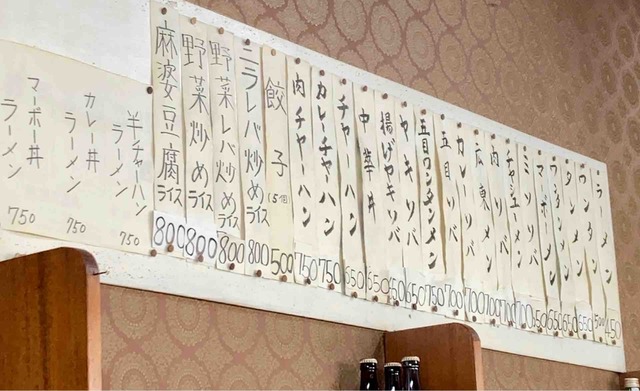 ラーメン 450
ワンタン 500
タンメン 550
ワンタンメン 650
マーボメン 650
ミソソバ 650
チャーシューメン 700
肉ソバ 700
広東メン 700
カレーソバ 700
五目ソバ 700
五目ワンタンメン 750
ヤキソバ 650
揚げヤキソバ 650
中華丼 650
チャーハン 650
カレーチャーハン 750
肉チャーハン 750
餃子(5個) 500
ニラレバ炒めライス 800
野菜レバ炒めライス 800
野菜炒めライス 800
麻婆豆腐ライス 800
半チャーハン
ラーメン 750
カレー丼
ラーメン 750
マーボー丼
ラーメン 750